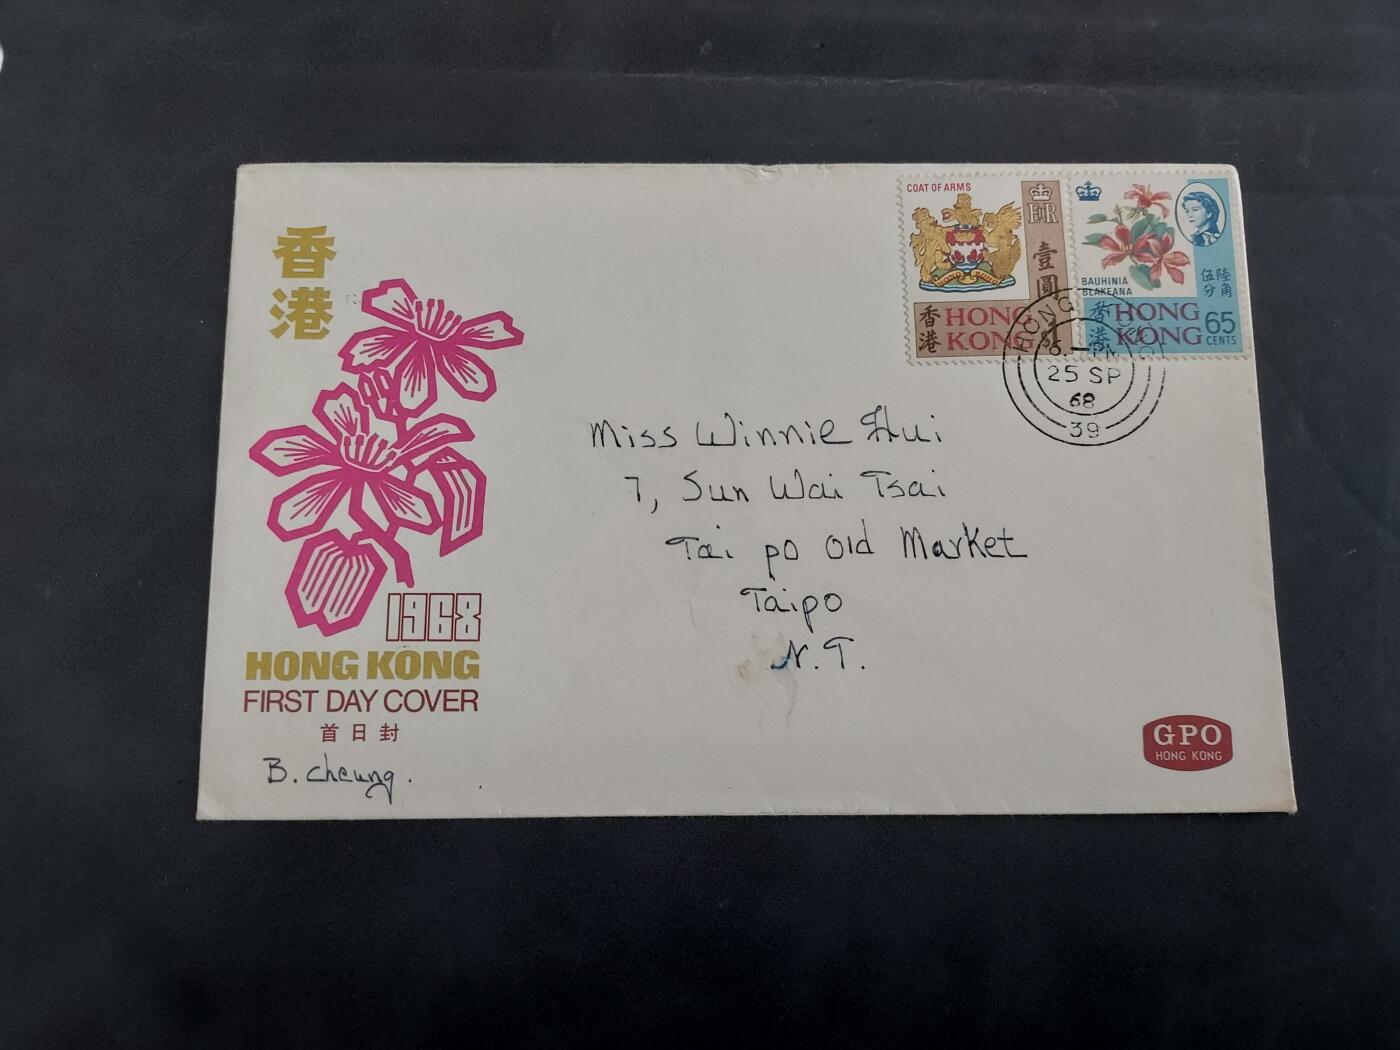 香
港
1968
HONG KONG
FIRST DAY COVER
首日封
B. Cheung.
COAT OF ARMS
EIIR
壹
圓
香
港
HONG
KONG
$1
BAUHINIA
BLAKEANA
陸角
伍分
香
港
HONG
KONG
65
CENTS
HONG KONG
PM
25 SP
68
39
Miss Winnie Hui
7, Sun Wai Tsai
Tai po Old Market
Taipo
N.T.
GPO
HONG KONG